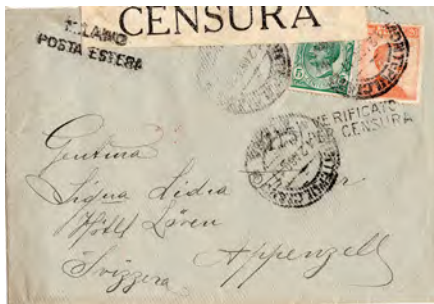 CENSURA
MILANO
POSTA ESTERA
5
VERIFICATO
PER CENSURA
Gentma
Sigra Lidia
Hôtel Löven
Appenzell
Svizzera